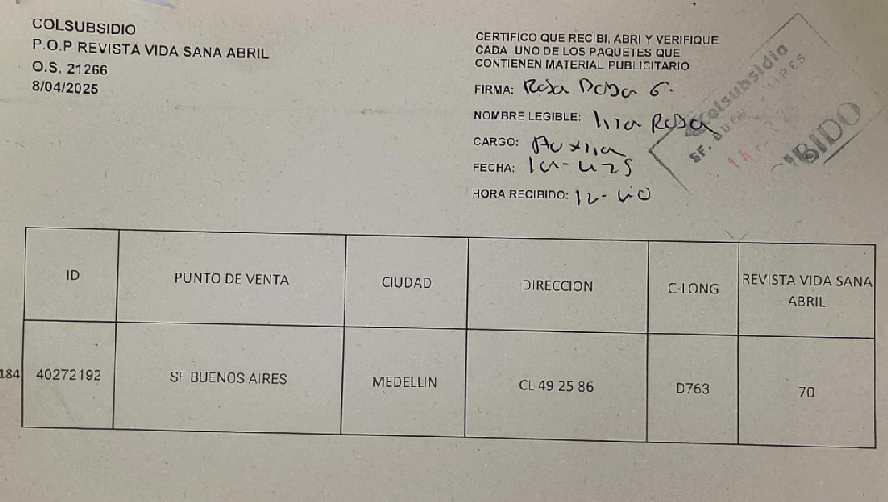 COLSUBSIDIO
P.O.P REVISTA VIDA SANA ABRIL
O.S. 21266
8/04/2025
CERTIFICO QUE RECIBI, ABRI Y VERIFIQUE
CADA UNO DE LOS PAQUETES QUE
CONTIENEN MATERIAL PUBLICITARIO
FIRMA: Rosa
NOMBRE LEGIBLE: Rosa
CARGO: Auxiliar
FECHA:
HORA RECIBIDO: 12-40
Colsubsidio
SF. BUENOS AIRES
RECIBIDO
ID PUNTO DE VENTA CIUDAD DIRECCION C-LONG REVISTA VIDA SANA
ABRIL
184 40272192 SF BUENOS AIRES MEDELLIN CL 49 25 86 D763 70